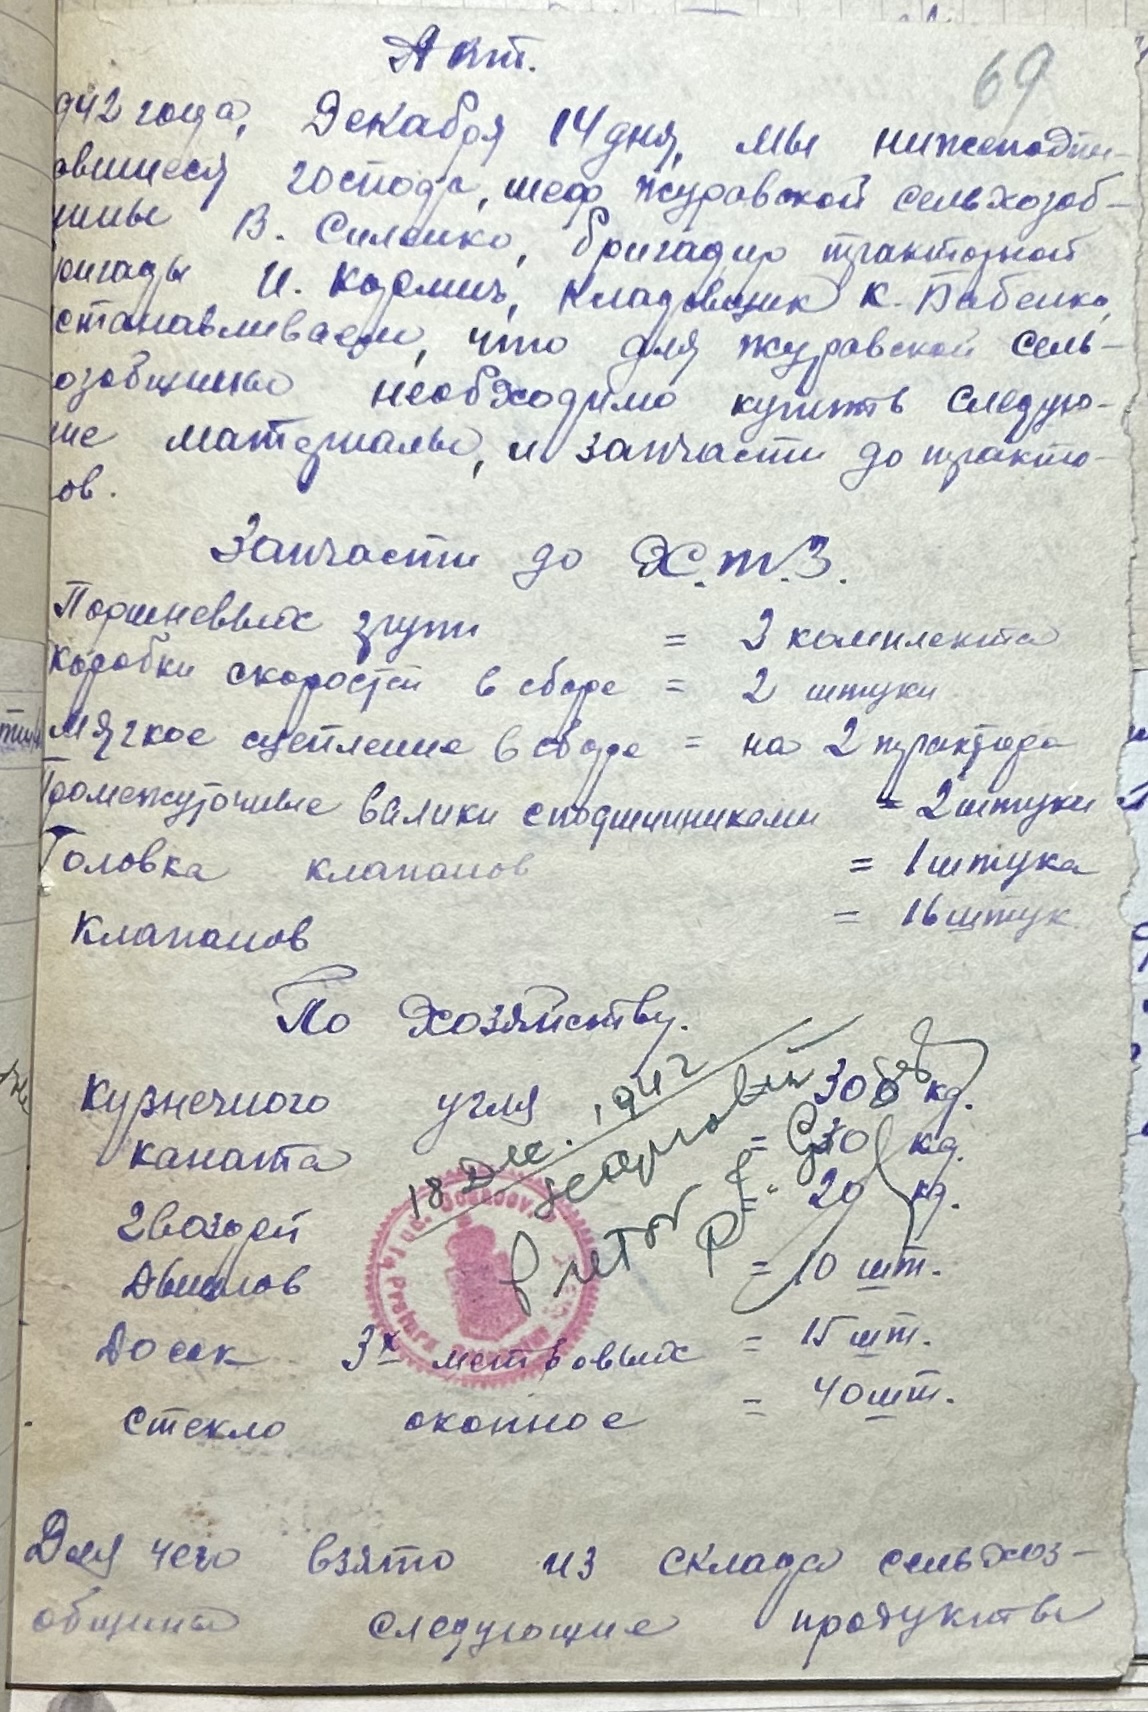 Акт.
69
942 года, Декабря 14 дня, мы нижеподпи-
авшиеся господа, шеф Журавской сельхозоб-
щины В. Силенко, бригадир тракторной
ригады И. Кузмич, кладовщик К. Бабенко,
станавливаем, что для Журавской сель-
озобщины необходимо купить следую-
ие материалы, и запчасти до тракто-
ов.
Запчасти до Х.Т.З.
Поршневых групп = 3 комплекта
Коробки скоростей в сборе = 2 штуки
Мягкое сцепление в сборе = на 2 трактора
Промежуточные валики с подшипниками = 2 штуки
Головка клапанов = 1 штука
Клапанов = 16 штук
По хозяйству.
Кузнечного угля 300 кг.
Каната = 30 кг.
Гвоздей = 20 кг.
Дышлов = 10 шт.
Досок 3х метровых = 15 шт.
Стекло оконное = 40 шт.
18 Дек. 1942
Для чего взято из склада сельхоз-
общины следующие продукты